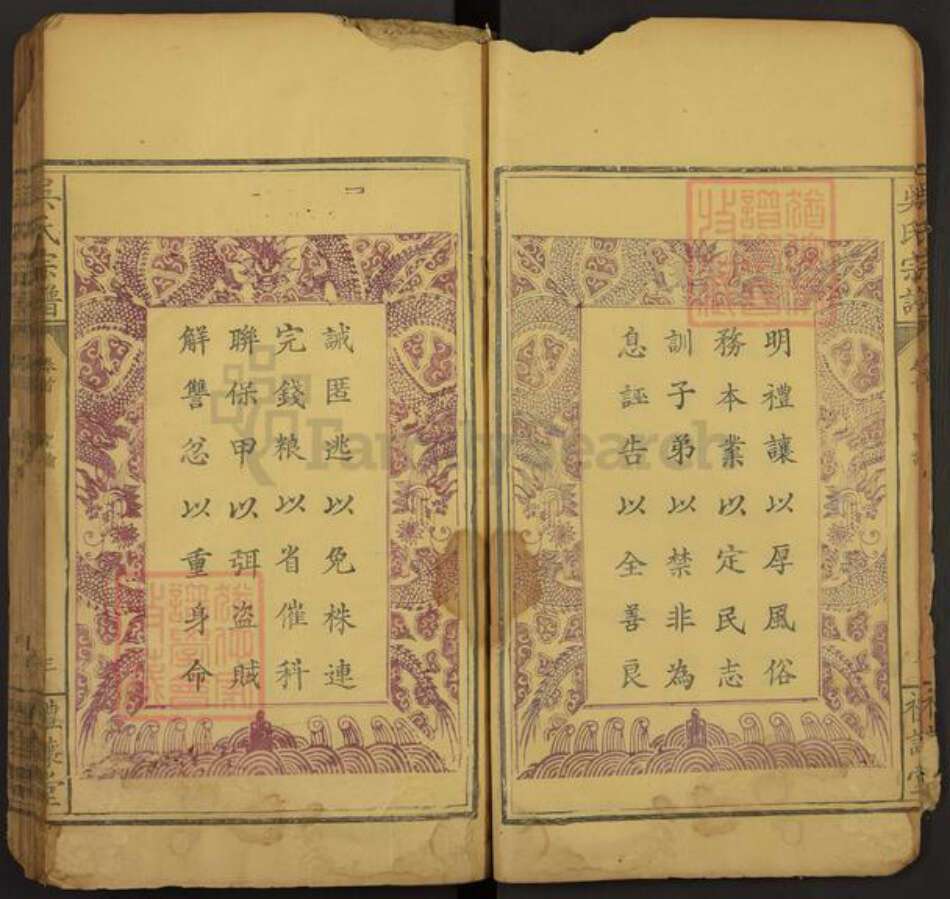 明禮讓以厚風俗
務本業以定民志
訓子弟以禁非為
息誣告以全善良
誡匿逃以免株連
完錢粮以省催科
聯保甲以弭盜賊
解讐忿以重身命
吳氏宗譜
卷首
三
禮讓堂
FamilySearch